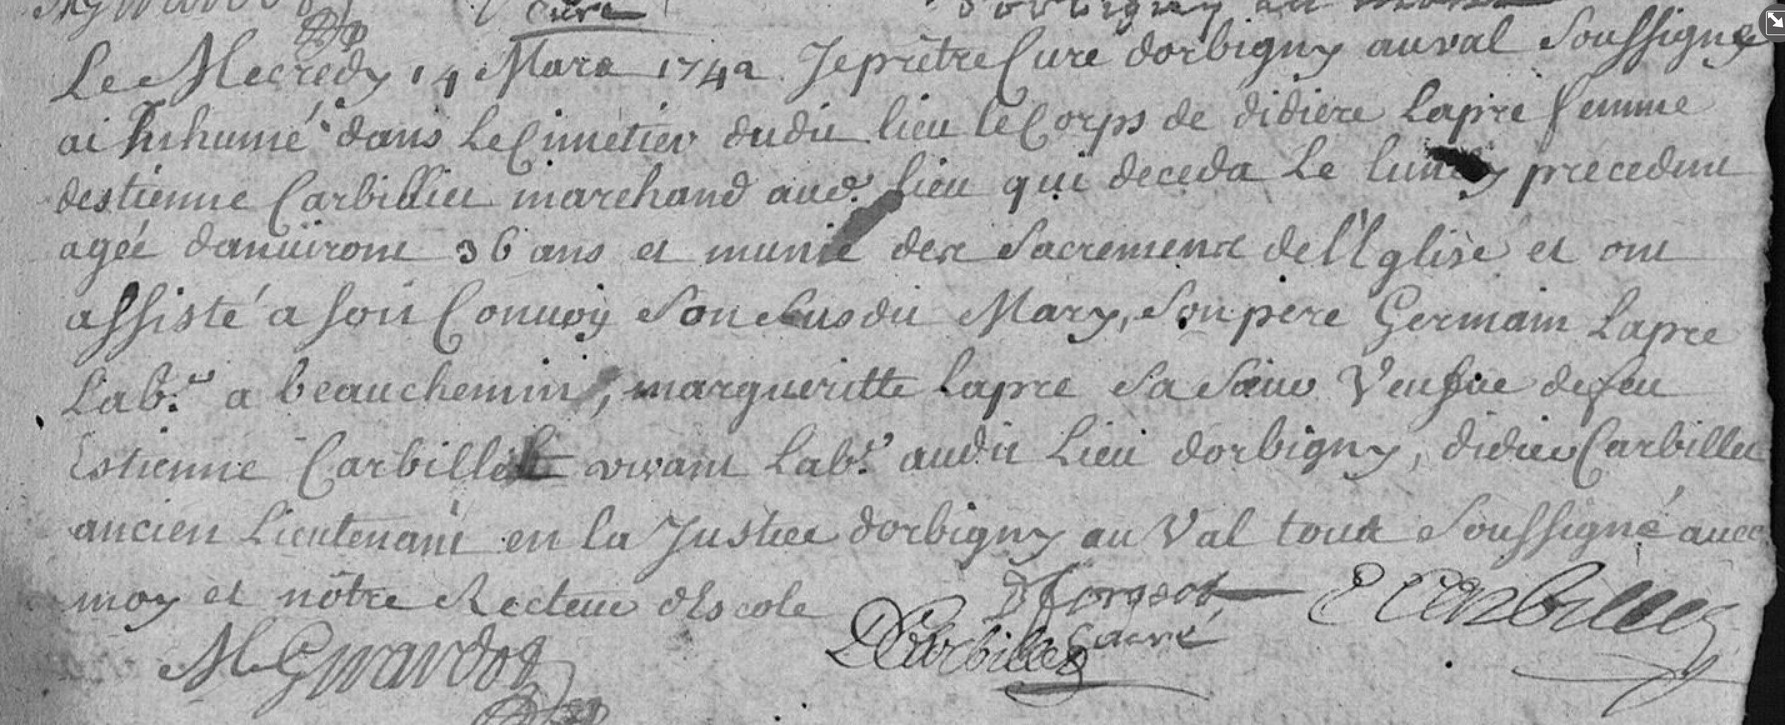 curé
Le Mecredy 14 Mars 1742 Je prêtre Curé dorbigny au val Soussigné
ai Inhumé dans Le Cimetier dudit lieu le Corps de didiere Lapre femme
destienne Carbillet marchand aud. lieu qui deceda Le lundy precedent
agée danuiront 36 ans et munie des Sacrements de l'Eglise et ont
assisté a son Conuoy Son susdit Mary, Son pere Germain Lapre
Lab.r a beauchemin, margueritte Lapre Sa Sœur Veufue de feu
Estienne Carbillet viuant Lab.r audit Lieu dorbigny, didier Carbillet
ancien Lieutenant en la Justice dorbigny au Val tous Soussigné auec
moy et nôtre Recteur dEscole
E Carbillet
D Carbillet curé
M Girardot